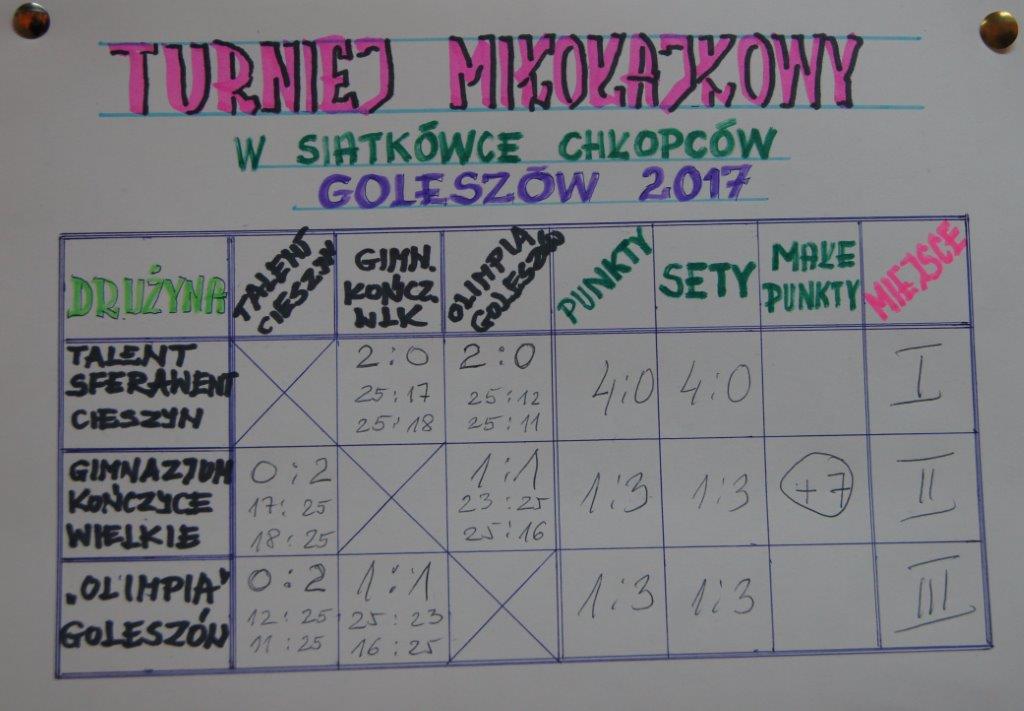 TURNIEJ MIKOŁAJKOWY
W SIATKÓWCE CHŁOPCÓW
GOLESZÓW 2017
DRUŻYNA
TALENT CIESZYN
GIMN.
KOŃCZ.
WLK
OLIMPIA GOLESZÓW
PUNKTY
SETY
MAŁE
PUNKTY
MIEJSCE
TALENT
SFERAWENT
CIESZYN
2:0
25:17
25:18
2:0
25:12
25:11
4:0
4:0
I
GIMNAZJUM
KOŃCZYCE
WIELKIE
0:2
17:25
18:25
1:1
23:25
25:16
1:3
1:3
+7
II
"OLIMPIA"
GOLESZÓW
0:2
12:25
11:25
1:1
25:23
16:25
1:3
1:3
III